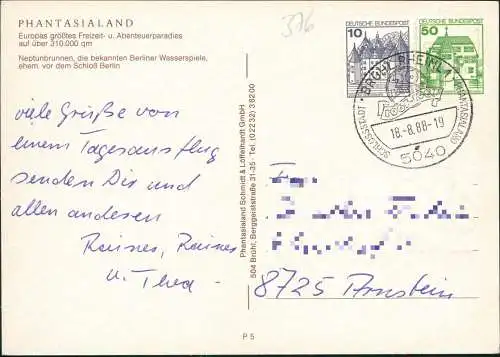 PHANTASIALAND
Europas größtes Freizeit- u. Abenteuerparadies
auf über 310.000 qm
Neptunbrunnen, die bekannten Berliner Wasserspiele,
ehem. vor dem Schloß Berlin
376
DEUTSCHE BUNDESPOST
10
DEUTSCHE BUNDESPOST
50
BRÜHL, RHEINL 1
PHANTASIALAND
SCHLOSSSTADT
18.-8.88-19
5040
viele Grüße von
einem Tagesausflug
senden Dir und
allen anderen
Rainer, Rainer
u. Thea
Phantasialand Schmidt & Löffelhardt GmbH
504 Brühl, Berggeiststraße 31-35 · Tel. (02232) 36200
8725 Arnstein
P 5